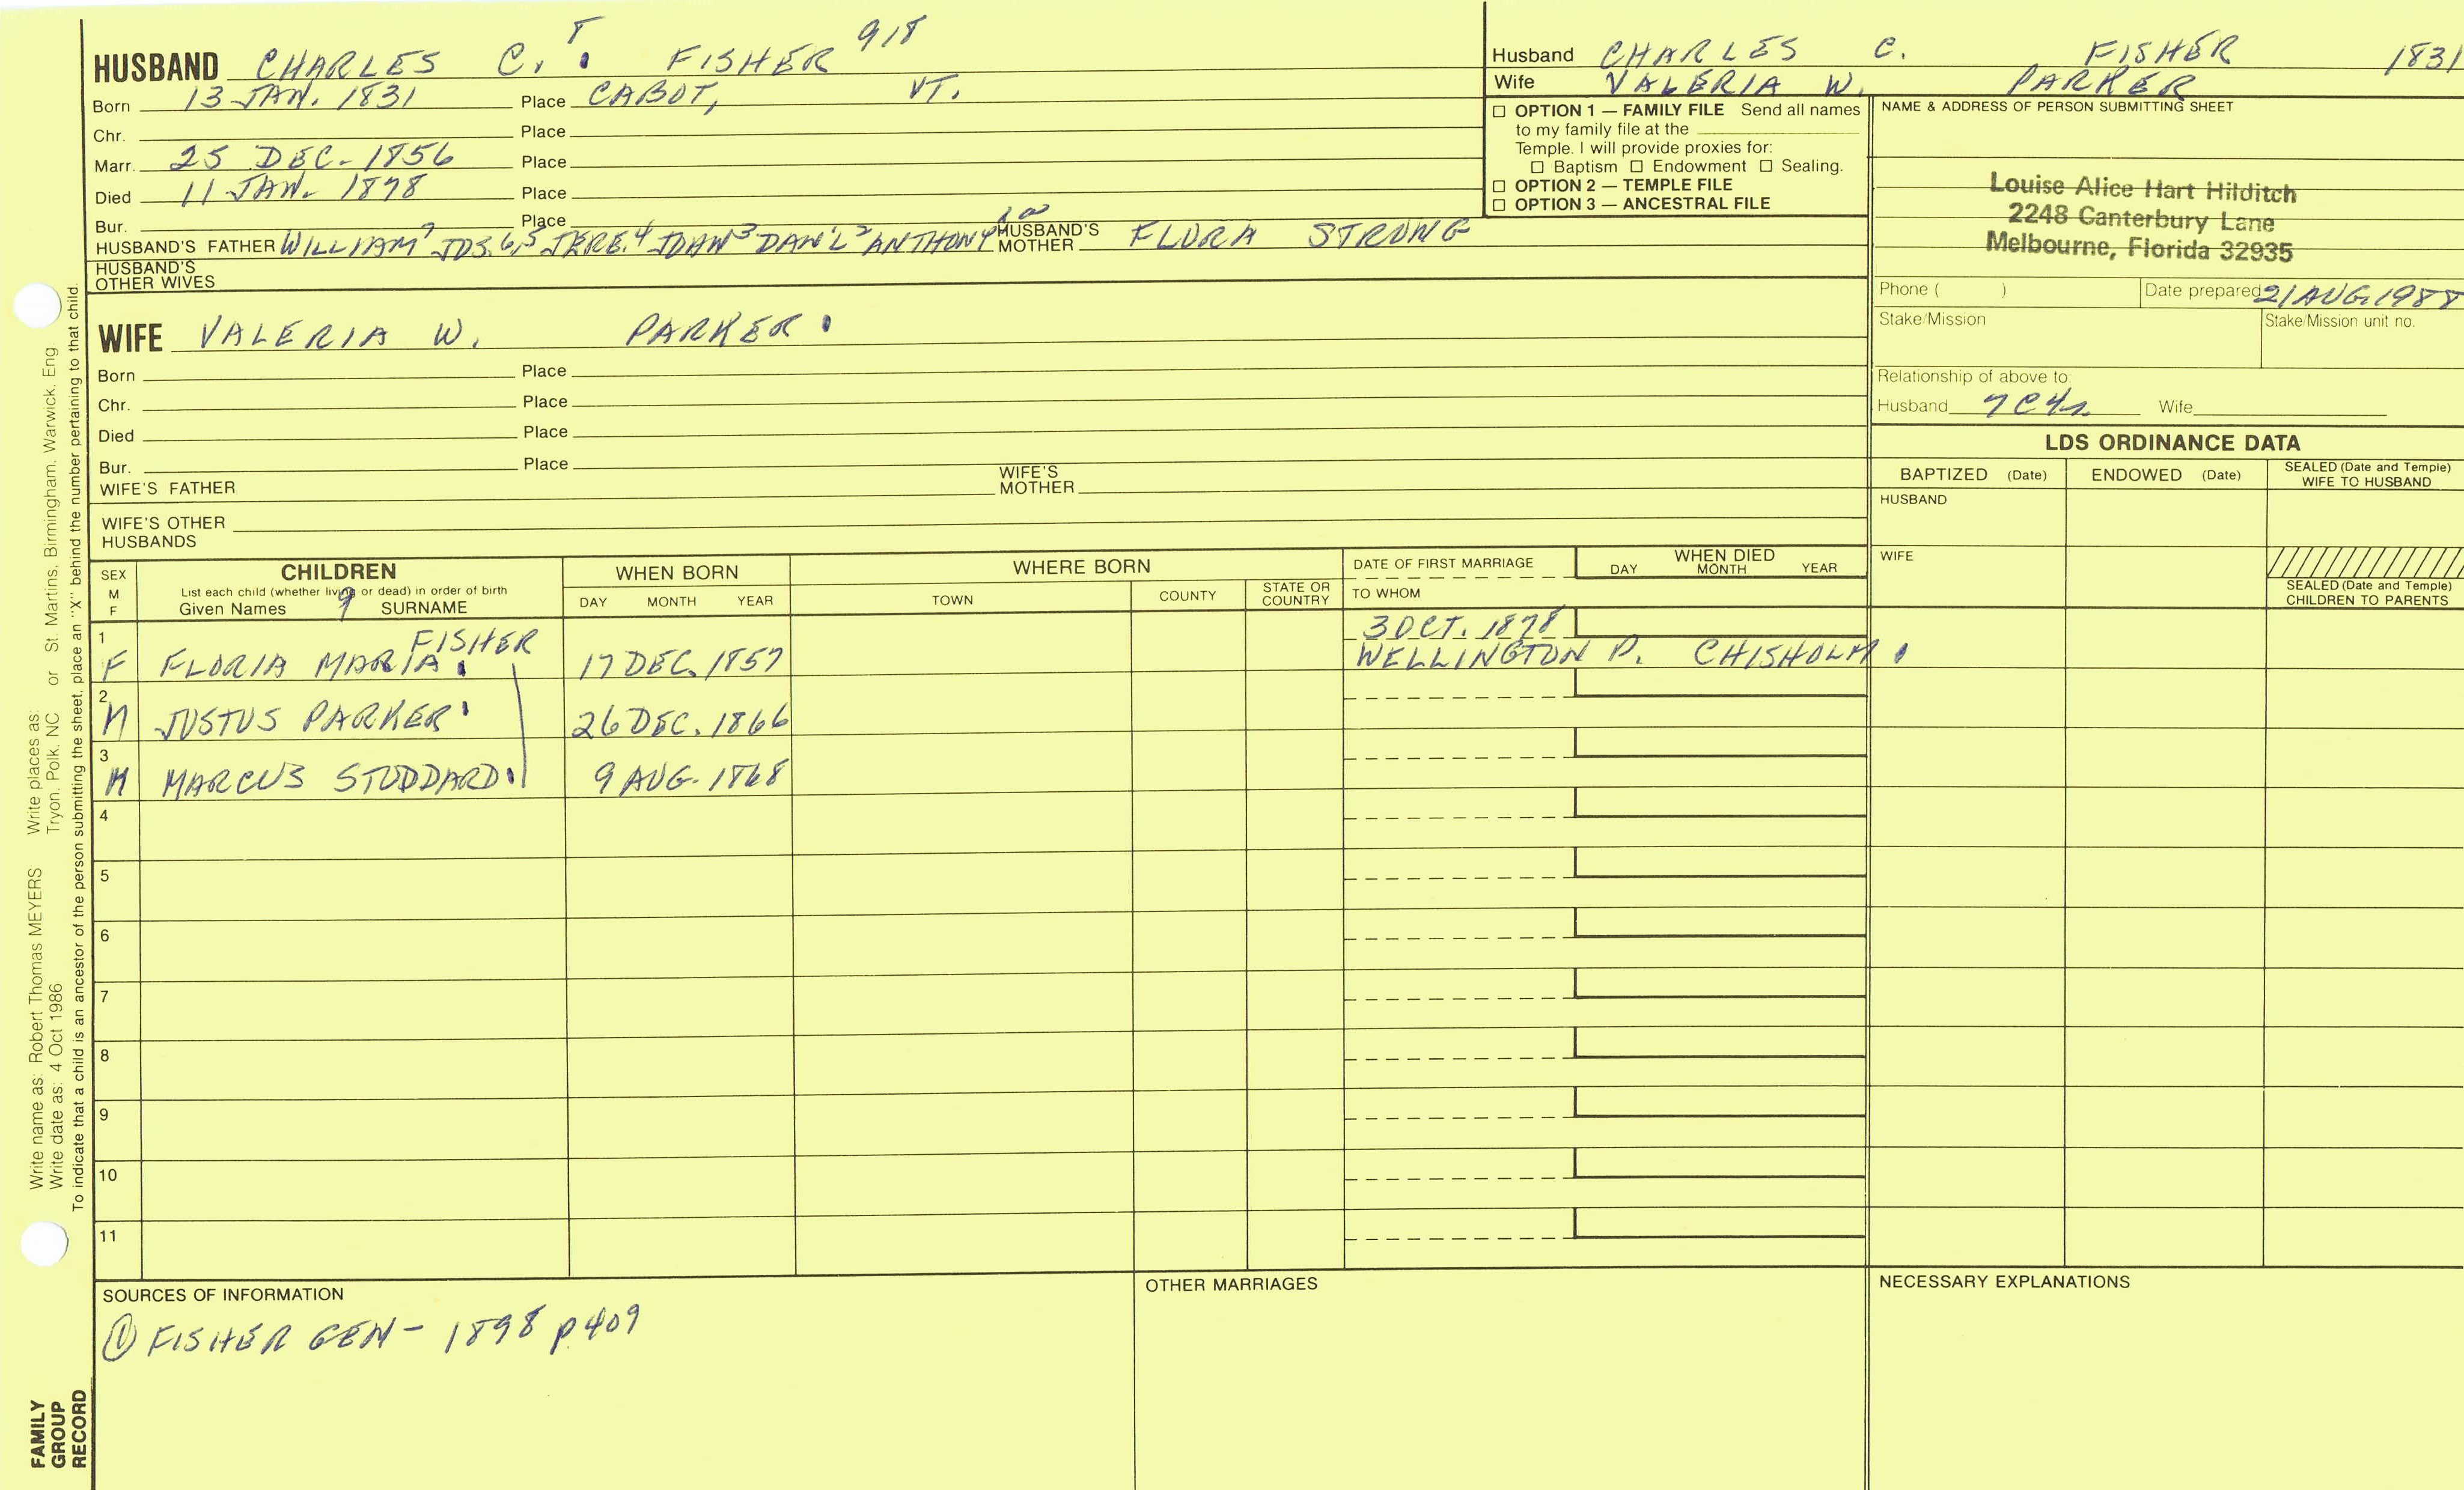 HUSBAND CHARLES C. 8 FISHER 918
Born 13 JAN. 1831 Place CABOT, VT.
Chr. Place
Marr. 25 DEC. 1856 Place
Died 11 JAN. 1878 Place
Bur. Place
HUSBAND'S FATHER WILLIAM 7 JOS. 6,5 JERE. 4 JOHN 3 DAN'L 2 ANTHONY HUSBAND'S MOTHER FLORA STRONG
HUSBAND'S OTHER WIVES
WIFE VALERIA W. PARKER
Born Place
Chr. Place
Died Place
Bur. Place
WIFE'S FATHER WIFE'S MOTHER
WIFE'S OTHER HUSBANDS
Husband CHARLES C. FISHER 1831
Wife VALERIA W. PARKER
OPTION 1 — FAMILY FILE Send all names
to my family file at the
Temple. I will provide proxies for:
Baptism Endowment Sealing.
OPTION 2 — TEMPLE FILE
OPTION 3 — ANCESTRAL FILE
NAME & ADDRESS OF PERSON SUBMITTING SHEET
Louise Alice Hart Hilditch
2248 Canterbury Lane
Melbourne, Florida 32935
Phone ( ) Date prepared 21 AUG. 1988
Stake/Mission Stake/Mission unit no.
Relationship of above to:
Husband 7C4R Wife
LDS ORDINANCE DATA
BAPTIZED (Date) ENDOWED (Date) SEALED (Date and Temple) WIFE TO HUSBAND
HUSBAND
WIFE
SEALED (Date and Temple) CHILDREN TO PARENTS
SEX M F
CHILDREN
List each child (whether living or dead) in order of birth
Given Names 9 SURNAME
WHEN BORN
DAY MONTH YEAR
WHERE BORN
TOWN COUNTY STATE OR COUNTRY
DATE OF FIRST MARRIAGE
TO WHOM
WHEN DIED
DAY MONTH YEAR
1 F FLORIA MARIA FISHER 17 DEC. 1857 3 OCT. 1878
WELLINGTON P. CHISHOLM
2 M JUSTUS PARKER 26 DEC. 1866
3 M MARCUS STODDARD 9 AUG. 1868
4
5
6
7
8
9
10
11
SOURCES OF INFORMATION
① FISHER GEN - 1898 p. 409
OTHER MARRIAGES
NECESSARY EXPLANATIONS
Write name as: Robert Thomas MEYERS Write places as:
Write date as: 4 Oct 1986 Tryon, Polk, NC or St. Martins, Birmingham, Warwick, Eng
To indicate that a child is an ancestor of the person submitting the sheet, place an "X" behind the number pertaining to that child.
FAMILY
GROUP
RECORD